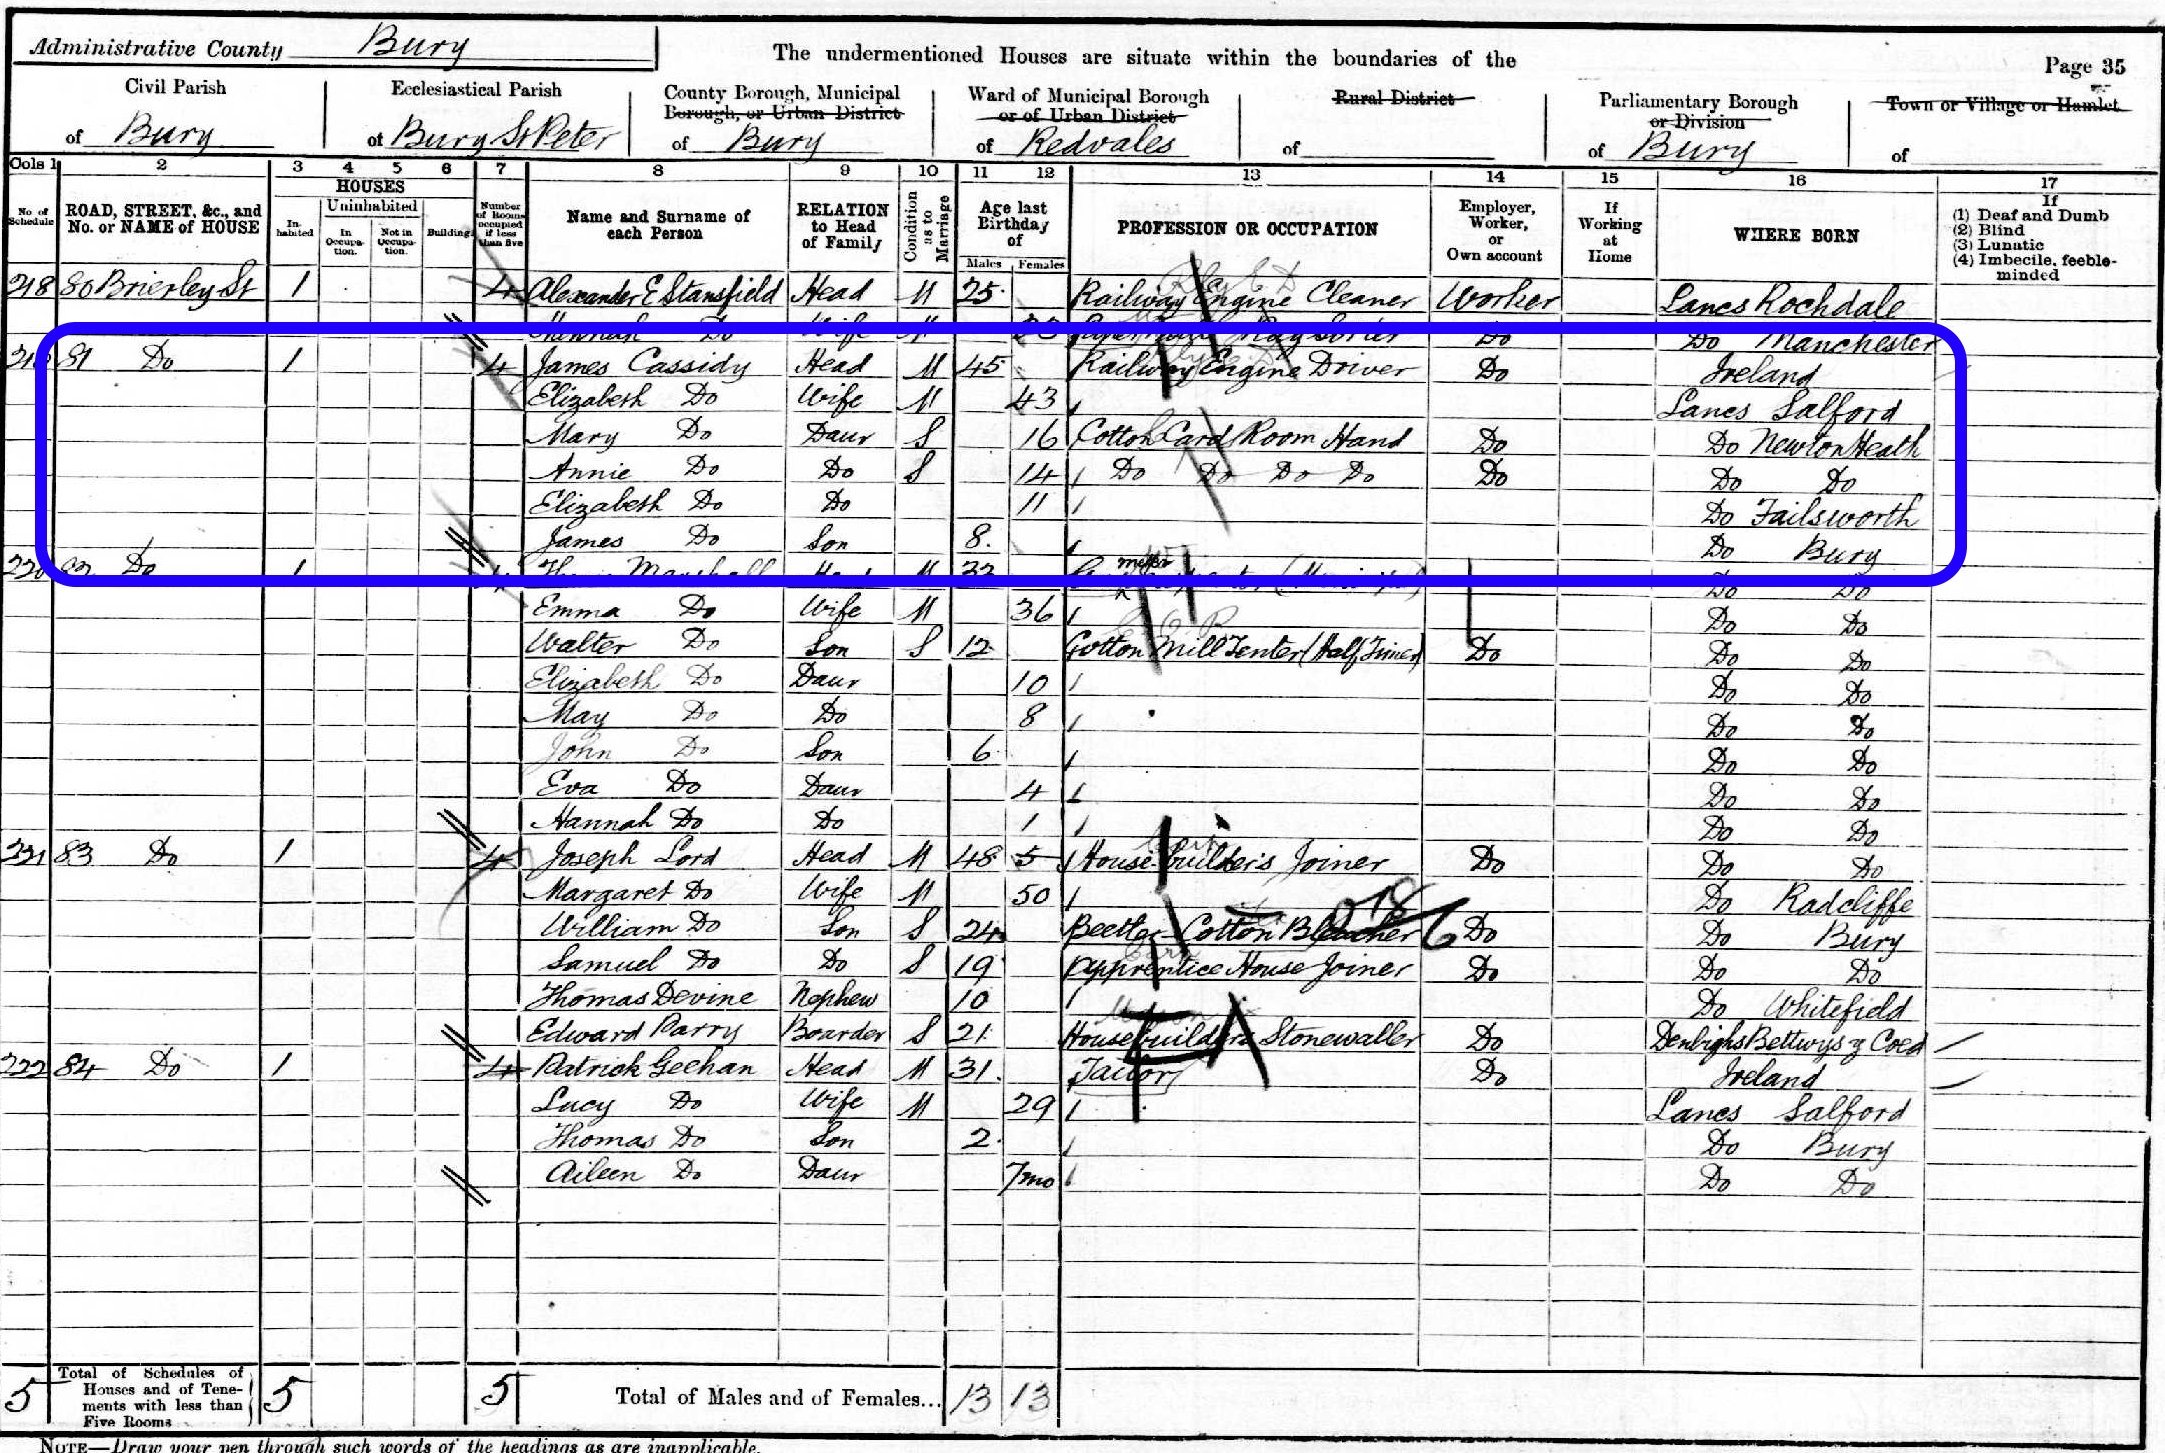 Administrative County Bury
The undermentioned Houses are situate within the boundaries of the
Page 35
Civil Parish of Bury
Ecclesiastical Parish of Bury St Peter
County Borough, Municipal Borough, or Urban District of Bury
Ward of Municipal Borough or of Urban District of Redvales
Rural District of
Parliamentary Borough or Division of Bury
Town or Village or Hamlet of
Cols 1 2 3 4 5 6 7 8 9 10 11 12 13 14 15 16 17
No. of Schedule
ROAD, STREET, &c., and No. or NAME of HOUSE
HOUSES
In-habited
Uninhabited
In Occupa-tion.
Not in Occupa-tion.
Building
Number of Rooms occupied if less than five
Name and Surname of each Person
RELATION to Head of Family
Condition as to Marriage
Age last Birthday of
Males Females
PROFESSION OR OCCUPATION
Employer, Worker, or Own account
If Working at Home
WHERE BORN
If
(1) Deaf and Dumb
(2) Blind
(3) Lunatic
(4) Imbecile, feeble-minded
218 80 Brierley St 1 4 Alexander E Stansfield Head M 25 Railway Engine Cleaner Worker Lancs Rochdale
Hannah Do Wife M Do Do Manchester
219 81 Do 1 4 James Cassidy Head M 45 Railway Engine Driver Do Ireland
Elizabeth Do Wife M 43 Lancs Salford
Mary Do Daur S 16 Cotton Card Room Hand Do Do Newton Heath
Annie Do Do S 14 Do Do Do Do Do Do Do
Elizabeth Do Do 11 Do Failsworth
James Do Son 8 Do Bury
220 82 Do 1 4 Marshall Head M Do Do
Emma Do Wife M 36 Do Do
Walter Do Son S 12 Cotton Mill Tenter (Half Timer) Do Do Do
Elizabeth Do Daur 10 Do Do
May Do Do 8 Do Do
John Do Son 6 Do Do
Eva Do Daur 4 Do Do
Hannah Do Do 1 Do Do
221 83 Do 1 4 Joseph Lord Head M 48 5 House builder's Joiner Do Do Do
Margaret Do Wife M 50 Do Radcliffe
William Do Son S 24 Beetler Cotton Bleacher Do Do Bury
Samuel Do Do S 19 Apprentice House Joiner Do Do Do
Thomas Devine Nephew 10 Do Whitefield
Edward Parry Boarder S 21 House builder's Stonewaller Do Denbighs Bettwys y Coed
222 84 Do 1 4 Patrick Geehan Head M 31 Tailor Do Ireland
Lucy Do Wife M 29 Lancs Salford
Thomas Do Son 2 Do Bury
Aileen Do Daur 7mo Do Do
5 Total of Schedules of Houses and of Tene-ments with less than Five Rooms 5 5 Total of Males and of Females... 13 13
NOTE—Draw your pen through such words of the headings as are inapplicable.